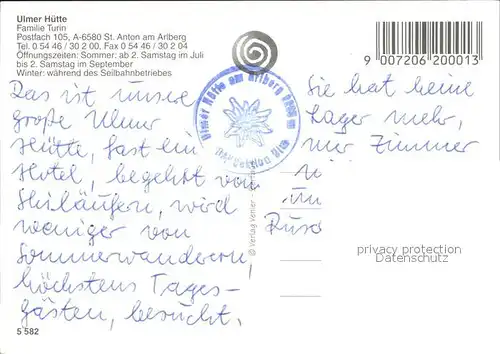 Ulmer Hütte
Familie Turin
Postfach 105, A-6580 St. Anton am Arlberg
Tel. 0 54 46 / 30 2 00, Fax 0 54 46 / 30 2 04
Öffnungszeiten: Sommer: ab 2. Samstag im Juli
bis 2. Samstag im September
Winter: während des Seilbahnbetriebes
9 007206 200013
Das ist unsere
große Ulmer
Hütte, fast ein
Hotel, begehrt von
Skiläufern, wird
weniger von
Sommerwanderern,
höchstens Tages-
gästen, besucht.
Ulmer Hütte am Arlberg
Sektion Ulm
© Verlag
Sie hat keine
Lager mehr,
nur Zimmer
privacy protection
Datenschutz
5 582